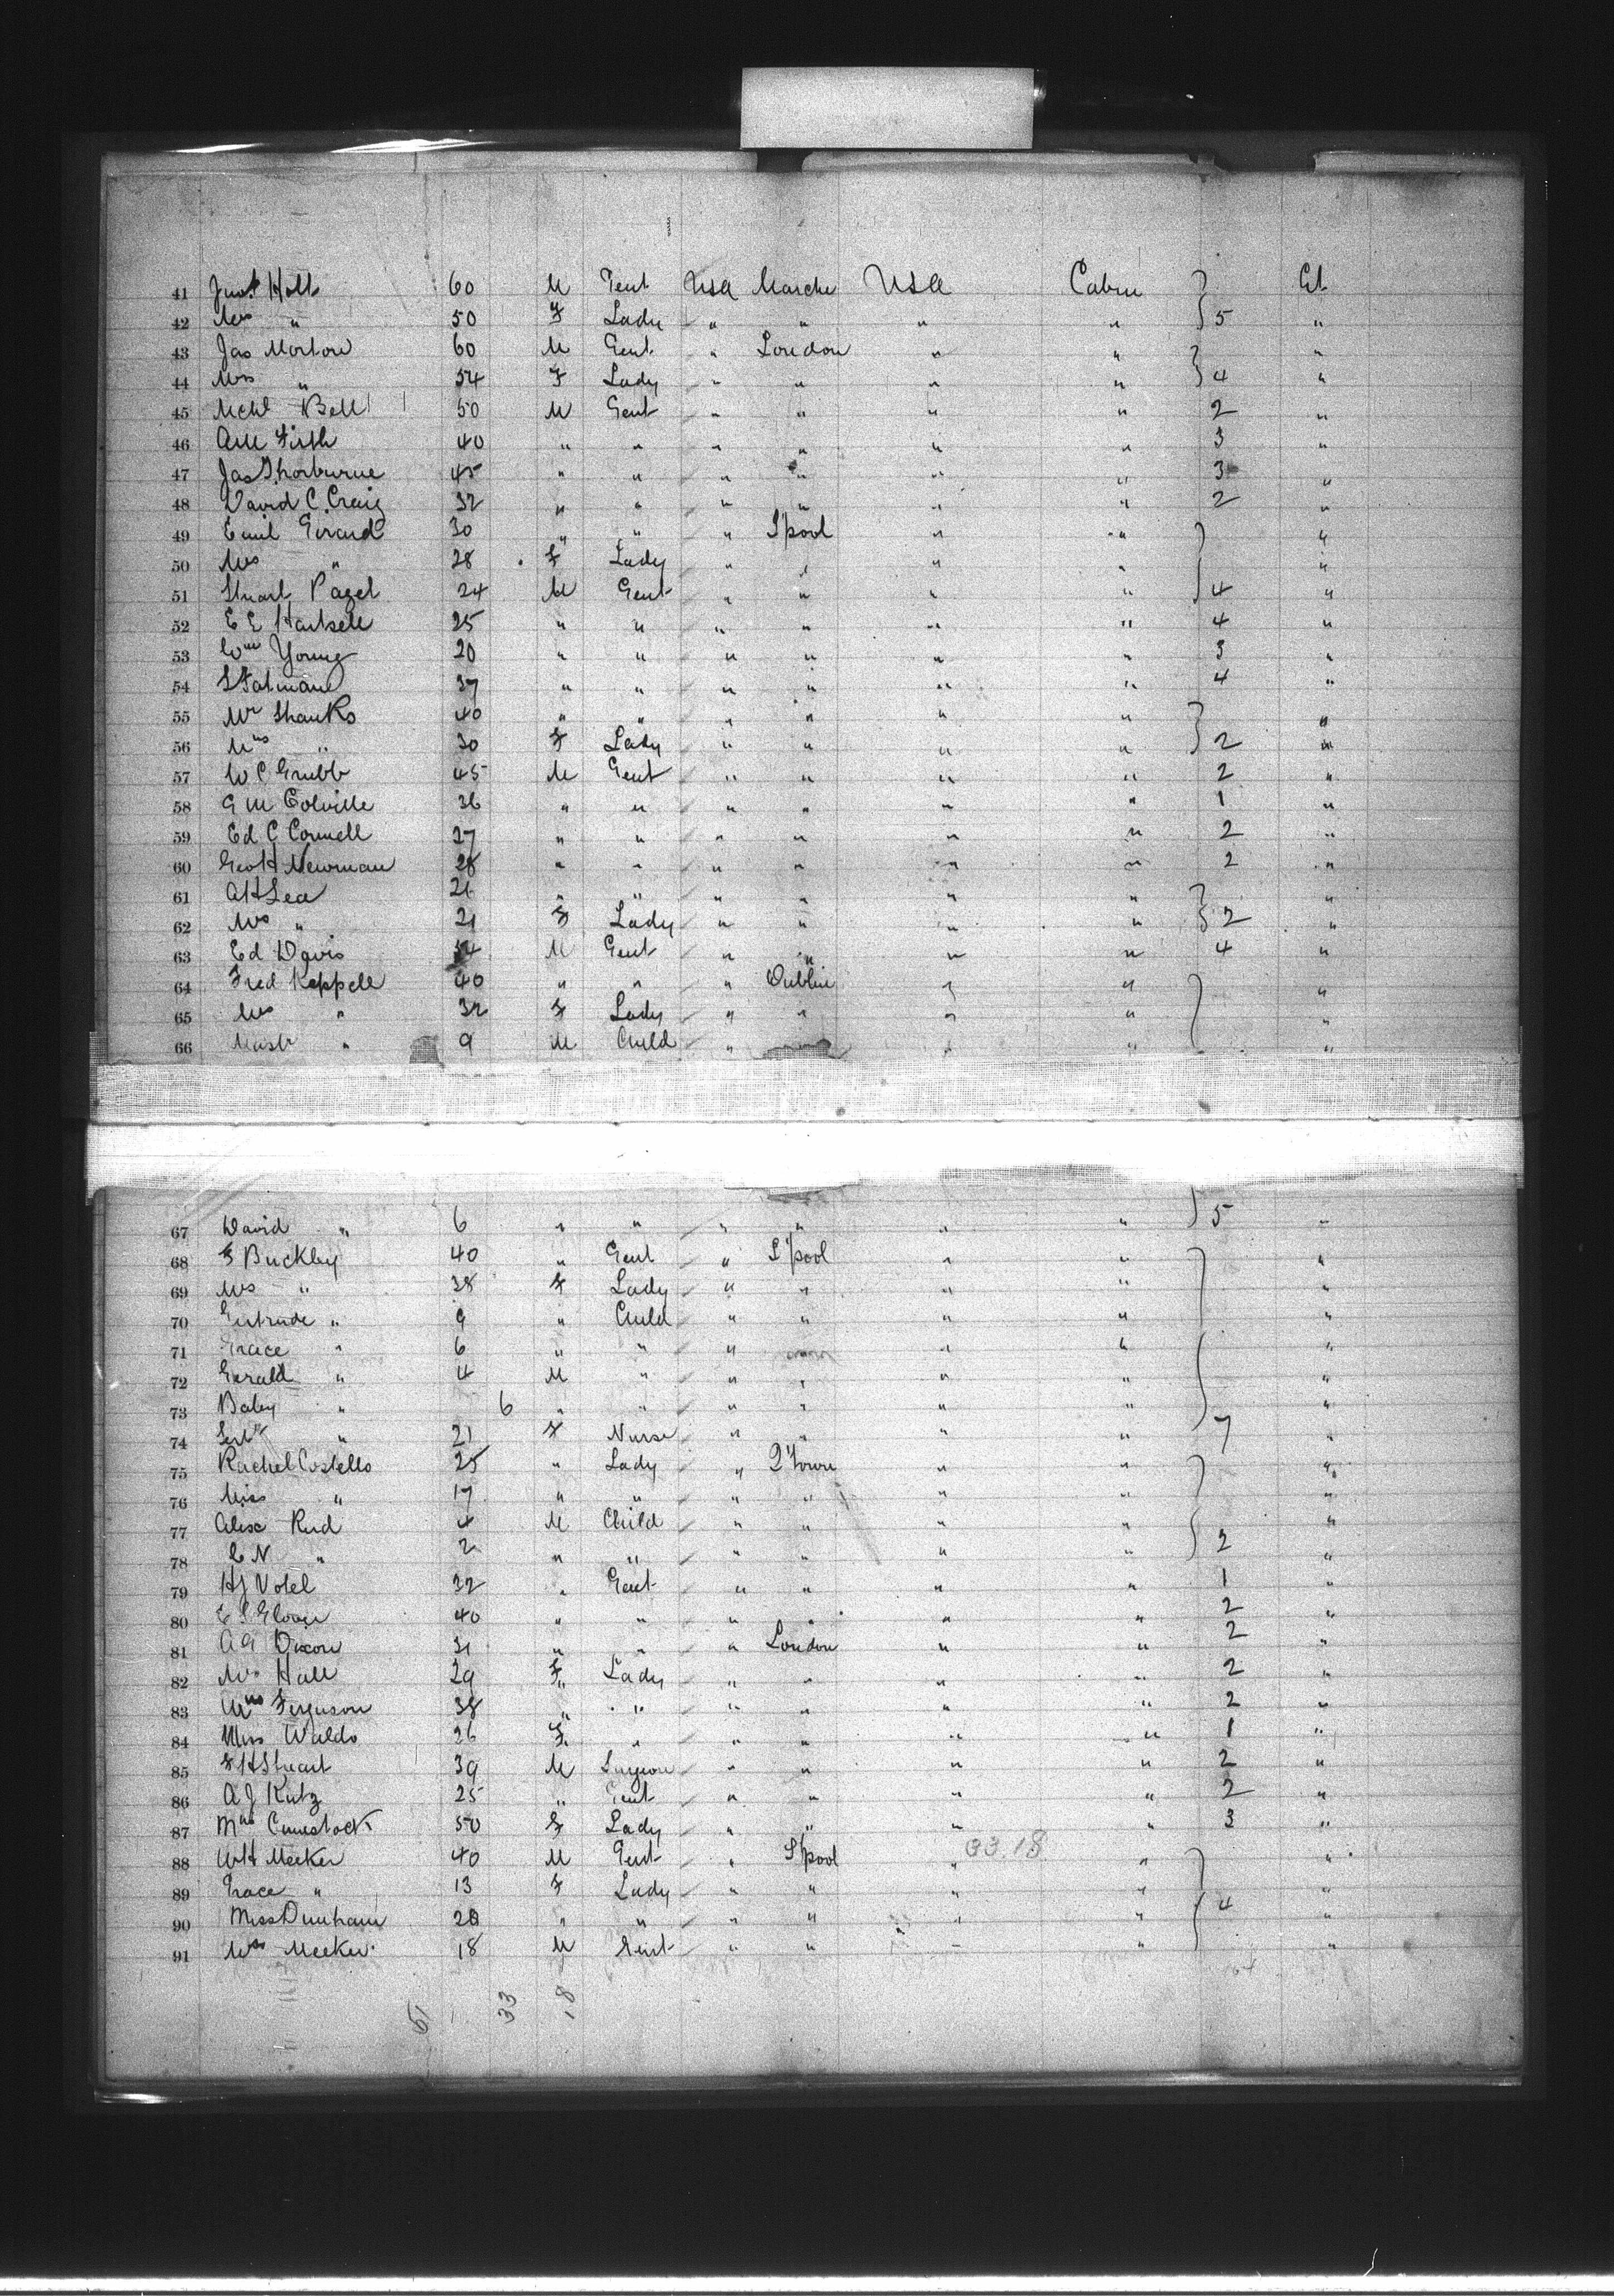 41 Jno. Holt 60 M Gent USA Manche USA Cabin Et
42 Mrs " 50 F Lady " " " " 5 "
43 Jas Morton 60 M Gent " London " " "
44 Mrs " 54 F Lady " " " " 4 "
45 Bell 50 M Gent " " " " 2 "
46 Firth 40 " " " " " " 3 "
47 Jas Thorburne 45 " " " " " " 3 "
48 David C. Craig 32 " " " " " " 2 "
49 Emil Girard 30 " " " L'pool " " "
50 Mrs " 28 F Lady " " " " "
51 Stuart Pagel 24 M Gent " " " " 4 "
52 E E Hartsell 25 " " " " " " 4 "
53 Wm Young 20 " " " " " " 3 "
54 37 " " " " " " 4 "
55 Mr Shanks 40 " " " " " " "
56 Mrs " 30 F Lady " " " " 2 "
57 W C Grubb 45 M Gent " " " " 2 "
58 G M Colville 36 " " " " " " 1 "
59 Ed C Connell 27 " " " " " " 2 "
60 Geo H Newman 28 " " " " " " 2 "
61 A H Lea 21 " " " " " " "
62 Mrs " 21 F Lady " " " " 2 "
63 Ed Davis M Gent " " " " 4 "
64 Fred Keppell 40 " " " Dublin " " "
65 Mrs " 32 F Lady " " " " "
66 Mastr " 9 M Child " " " "
67 David " 6 " " " " " " 5 "
68 Buckley 40 " Gent " L'pool " " "
69 Mrs " 38 F Lady " " " " "
70 Gertrude " 9 " Child " " " " "
71 Grace " 6 " " " " " "
72 Gerald " 4 M " " " " " "
73 Baby " 6 " " " " " " "
74 Servt " 21 F Nurse " " " " 7 "
75 Rachel Costello 25 " Lady " Q'Town " " "
76 Miss " 17 " " " " " " "
77 Alex Reid 4 M Child " " " " "
78 E N " 2 " " " " " " 2 "
79 H J Votel 32 " Gent " " " " 1 "
80 E S Glover 40 " " " " " " 2 "
81 A G Dixon 31 " " " London " " 2 "
82 Mrs Hall 29 F Lady " " " " 2 "
83 Mrs Ferguson 38 " " " " " " 2 "
84 Miss Waldo 26 F " " " " " 1 "
85 F H Stuart 39 M Surgeon " " " " 2 "
86 A J Kutz 25 " Gent " " " " 2 "
87 Mrs Comestock 50 F Lady " " " " 3 "
88 W H Meeker 40 M Gent " L'pool " 33.18 " "
89 Grace " 13 F Lady " " " " "
90 Miss Dunham 28 " " " " " " 4 "
91 Meeker 18 M Gent " " " " "
51 33 18